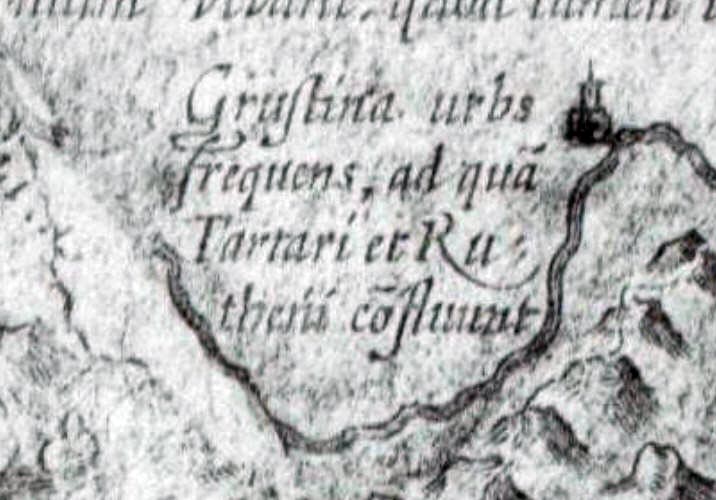 vivant, quasi tamen
Gruſtina urbs
frequens, ad quā
Tartari et Ru:
theni cōfluunt